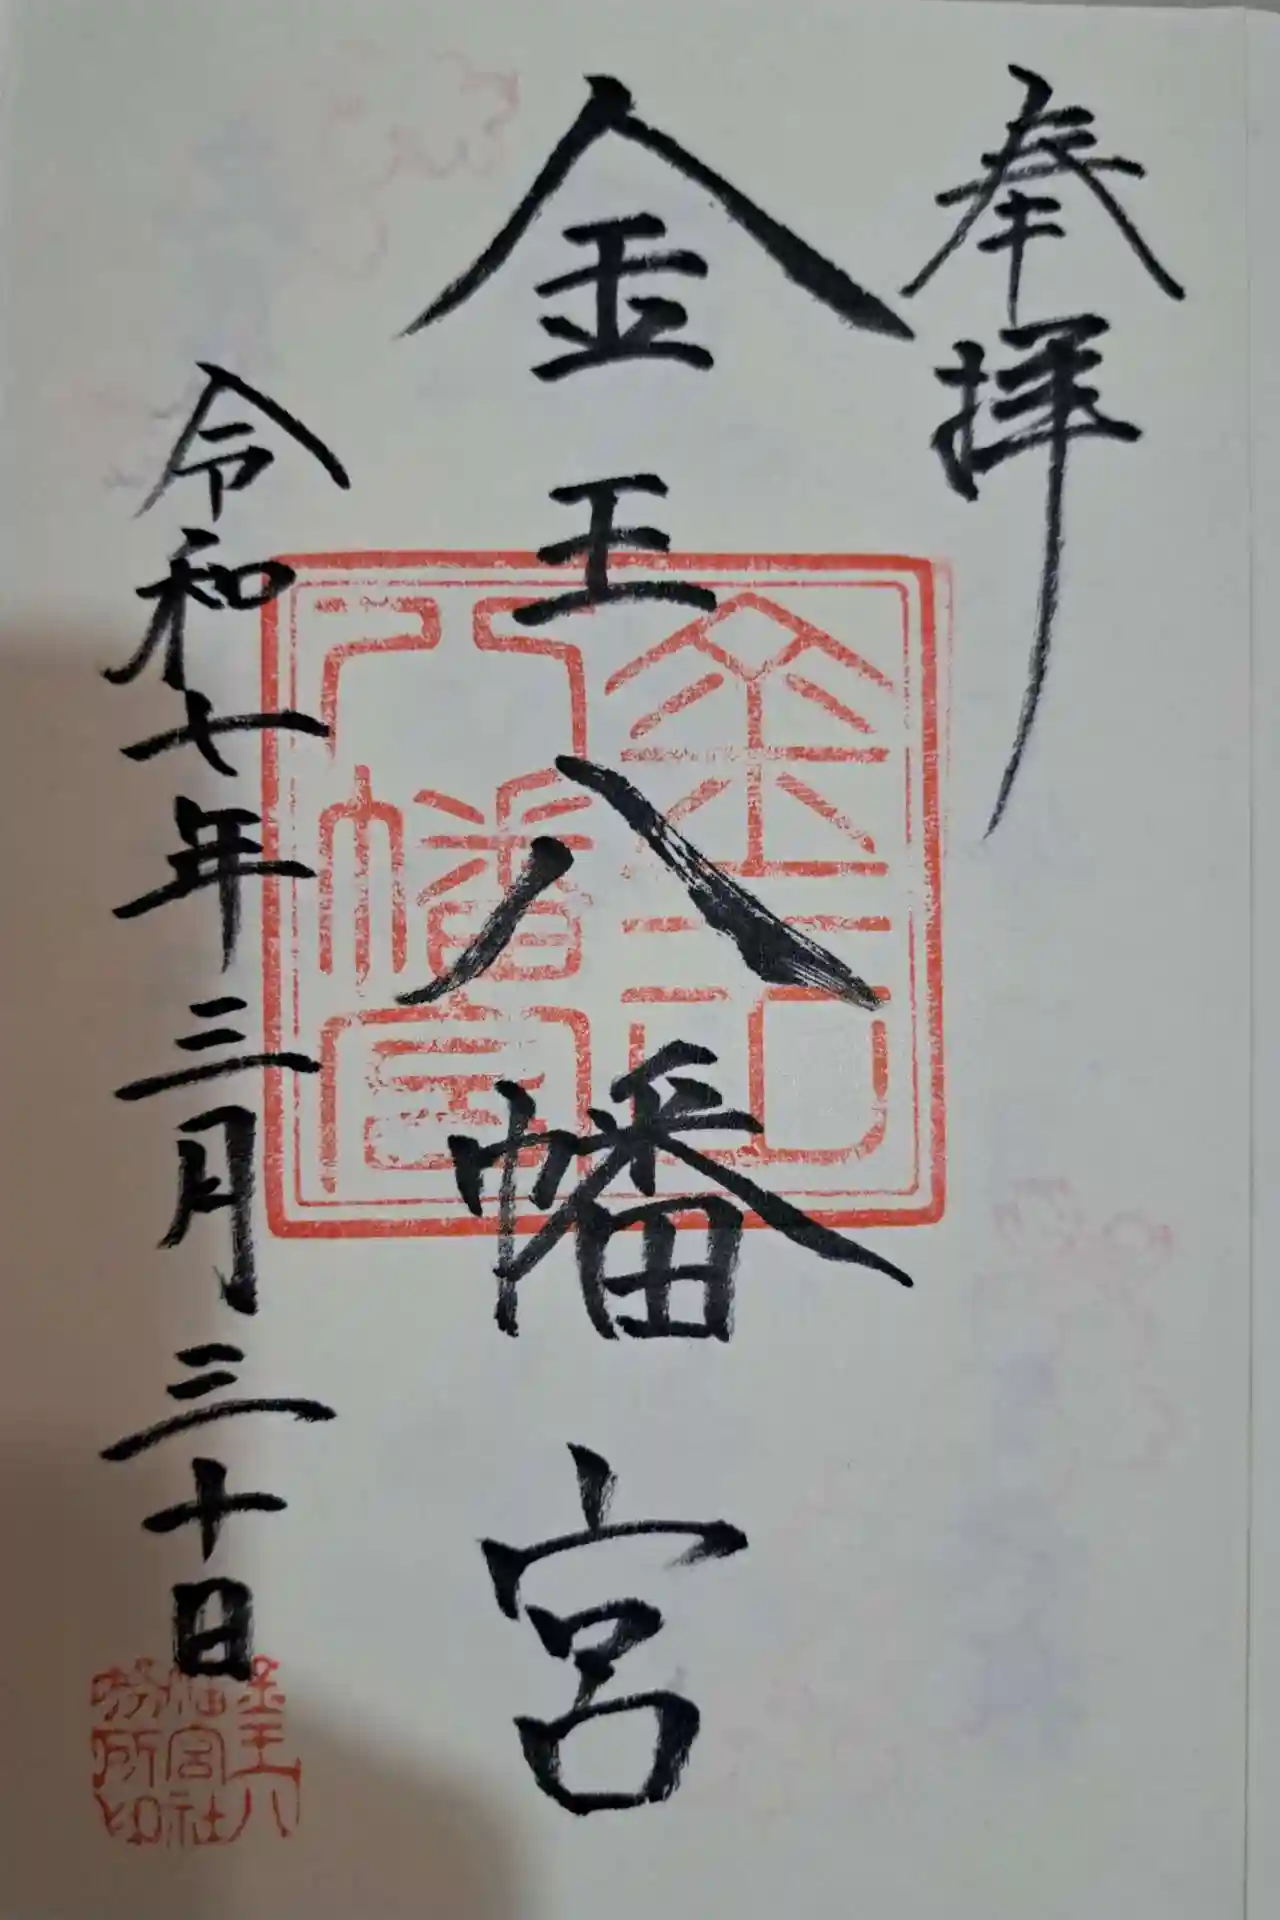 奉拝
金王八幡宮
令和七年三月三十日
金王八幡宮
金王八幡宮社務所印